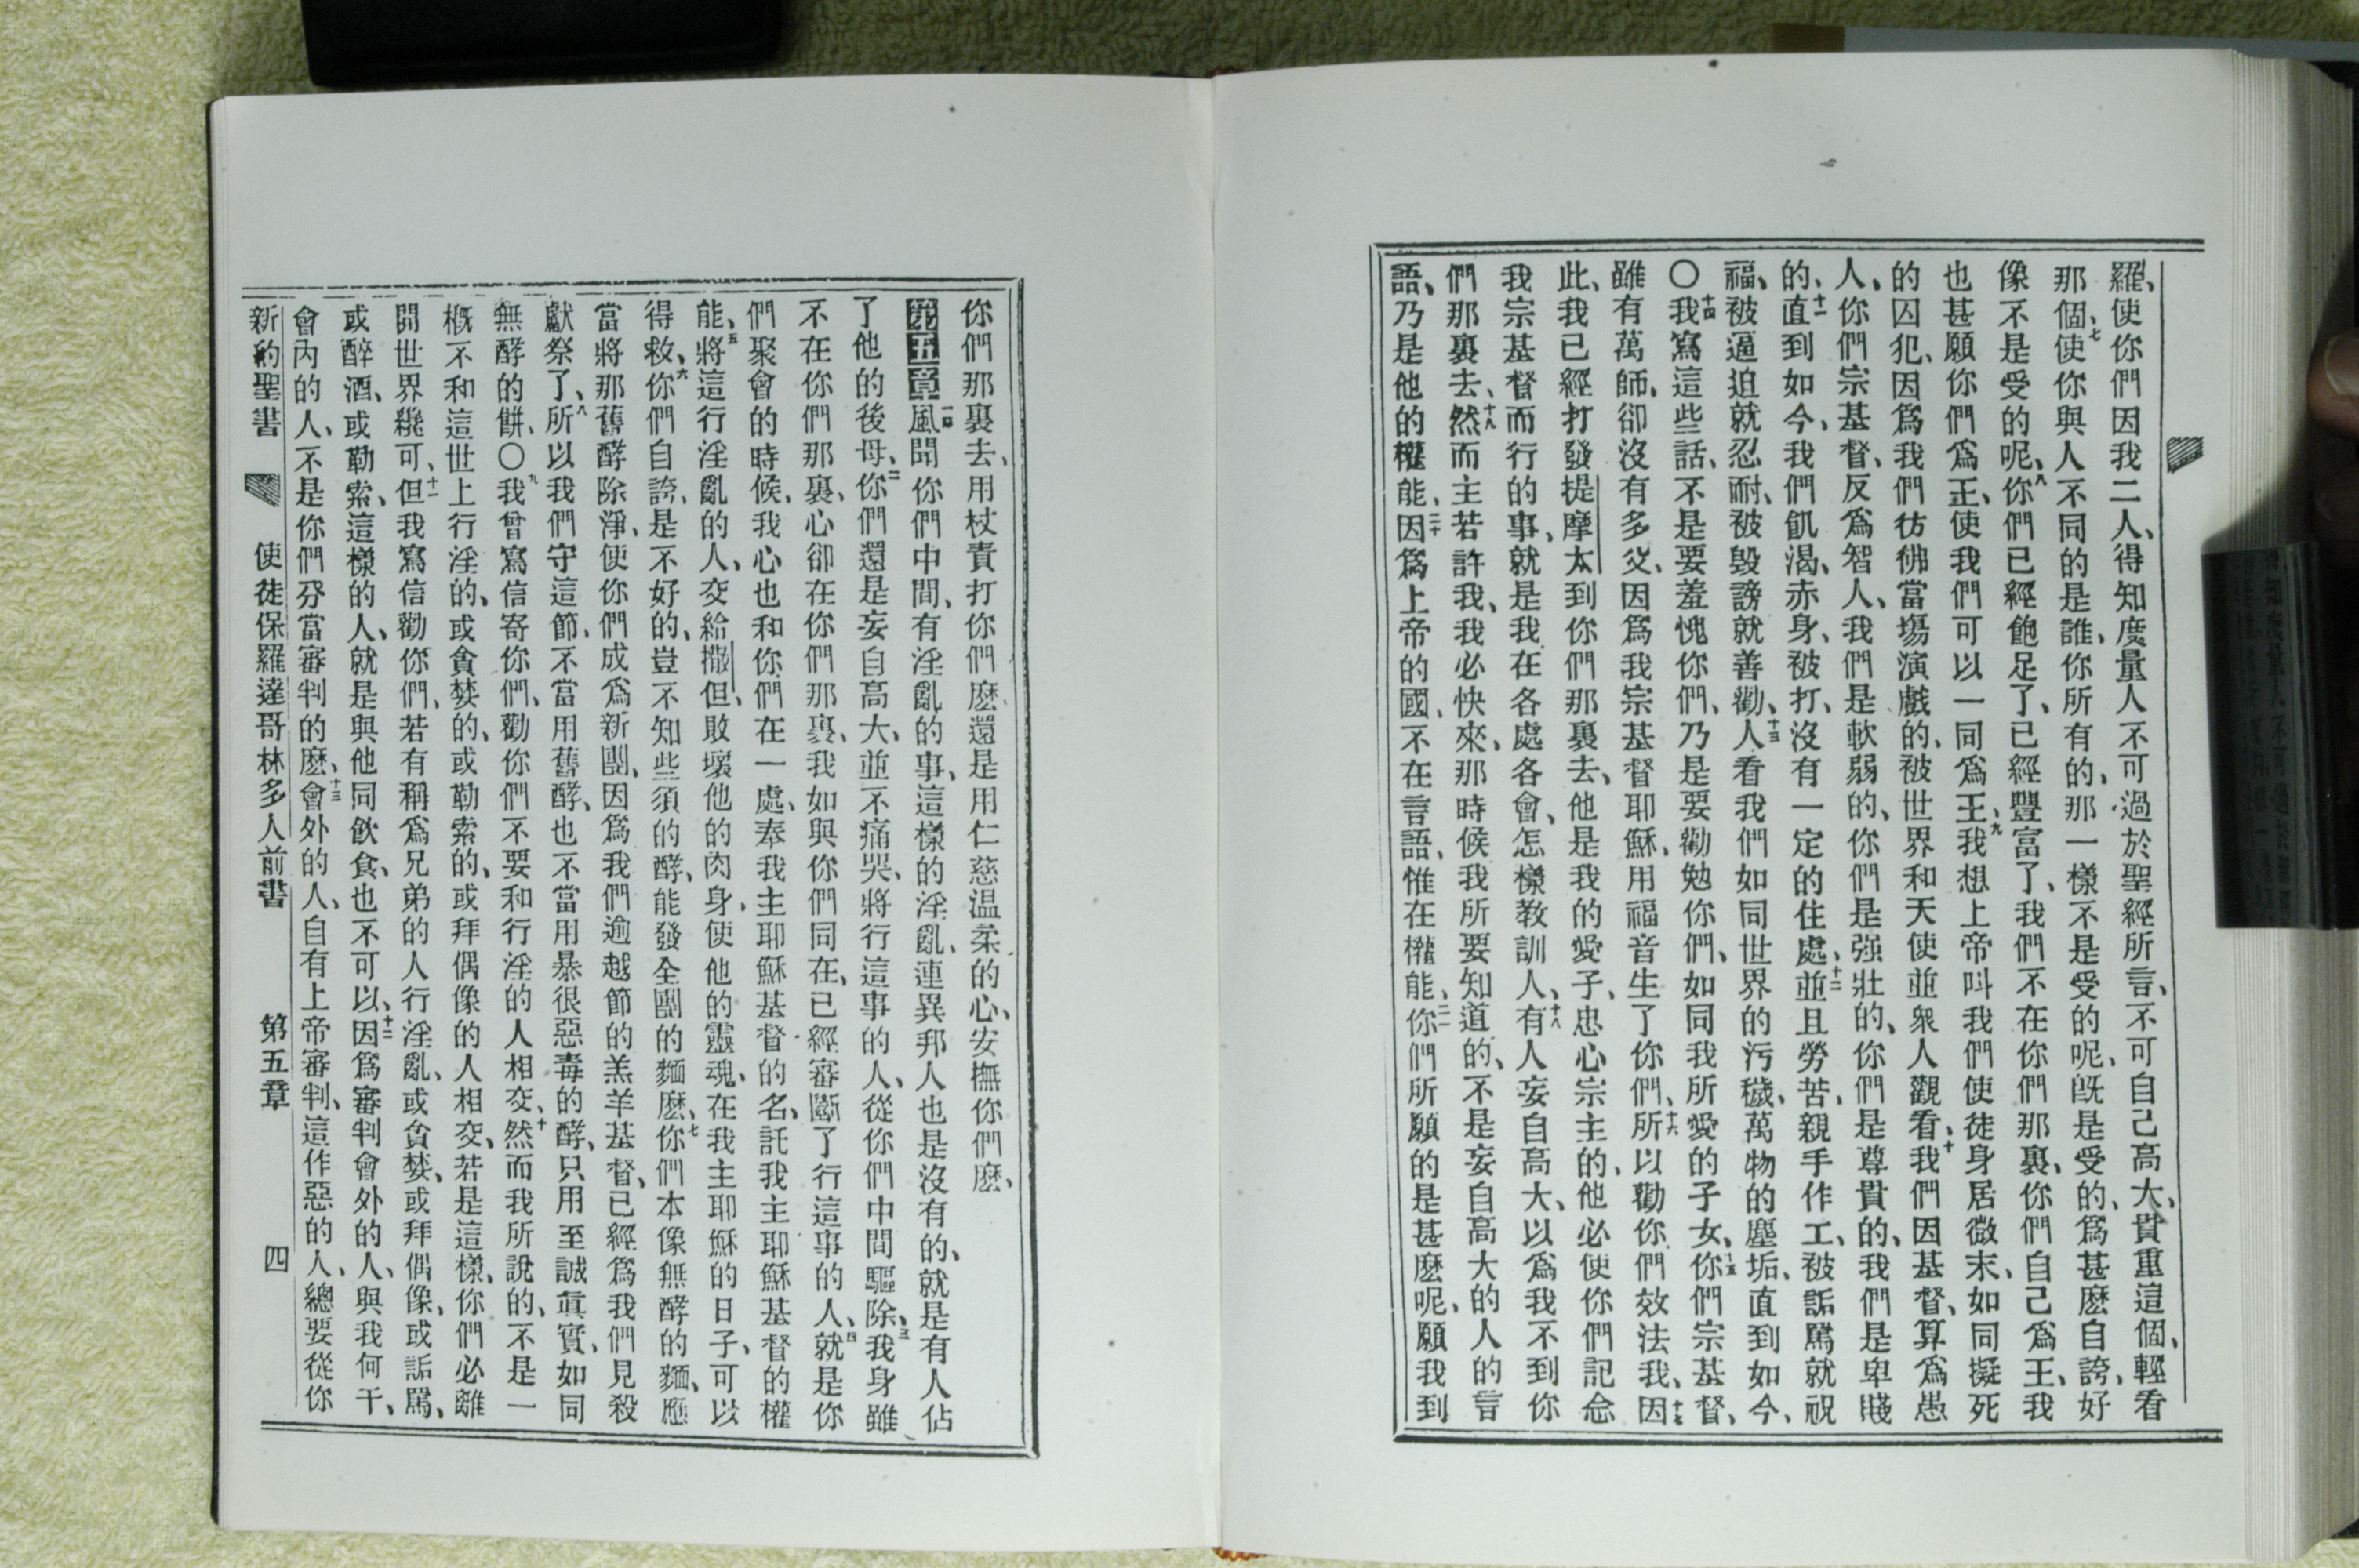 羅、使你們因我二人、得知度量人不可過於聖經所言、不可自己高大、貴重這個、輕看
那個、七使你與人不同的是誰、你所有的、那一樣不是受的呢、旣是受的、爲甚麽自誇、好
像不是受的呢、八你們已經飽足了、已經豐富了、我們不在你們那裏、你們自己爲王、我
也甚願你們爲正、使我們可以一同爲王、九我想上帝叫我們使徒身居微末、如同擬死
的囚犯、因爲我們彷彿當塲演戲的、被世界和天使並衆人觀看、十我們因基督、算爲愚
人、你們宗基督、反爲智人、我們是軟弱的、你們是强壯的、你們是尊貴的、我們是卑賤
的、十一直到如今、我們飢渴、赤身、被打、沒有一定的住處、十二並且勞苦、親手作工、被詬罵就祝
福、被逼迫就忍耐、被毁謗就善勸、十三人看我們如同世界的污穢、萬物的塵垢、直到如今、
〇十四我寫這些話、不是要羞愧你們、乃是要勸勉你們、如同我所愛的子女、十五你們宗基督、
雖有萬師、卻沒有多父、因爲我宗基督耶穌、用福音生了你們、十六所以勸你們效法我、十七因
此、我已經打發提摩太到你們那裏去、他是我的愛子、忠心宗主的、他必使你們記念
我宗基督而行的事、就是我在各處各會、怎樣教訓人、十八有人妄自高大、以爲我不到你
們那裏去、十九然而主若許我、我必快來、那時候我所要知道的、不是妄自高大的人的言
語、乃是他的權能、二十因爲上帝的國、不在言語、惟在權能、二一你們所願的是甚麽呢、願我到
你們那裏去、用杖責打你們麽、還是用仁慈温柔的心、安撫你們麽、
第五章一風聞你們中間、有淫亂的事、這樣的淫亂、連異邦人也是沒有的、就是有人佔
了他的後母、二你們還是妄自高大、並不痛哭、將行這事的人、從你們中間驅除、三我身雖
不在你們那裏、心卻在你們那裏、我如與你們同在、已經審斷了行這事的人、四就是你
們聚會的時候、我心也和你們在一處、奉我主耶穌基督的名、託我主耶穌基督的權
能、五將這行淫亂的人、交給撒但、敗壞他的肉身、使他的靈魂、在我主耶穌的日子、可以
得救、六你們自誇、是不好的、豈不知些須的酵、能發全團的麵麽、七你們本像無酵的麵、應
當將那舊酵除淨、使你們成爲新團、因爲我們逾越節的羔羊基督、已經爲我們見殺
獻祭了、八所以我們守這節、不當用舊酵、也不當用暴很惡毒的酵、只用至誠眞實、如同
無酵的餅、〇九我曾寫信寄你們、勸你們不要和行淫的人相交、十然而我所說的、不是一
概不和這世上行淫的、或貪婪的、或勒索的、或拜偶像的人相交、若是這樣、你們必離
開世界纔可、十一但我寫信勸你們、若有稱爲兄弟的人行淫亂、或貪婪、或拜偶像、或詬罵、
或醉酒、或勒索、這樣的人、就是與他同飲食、也不可以、十二因爲審判會外的人、與我何干、
會內的人、不是你們分當審判的麽、十三會外的人、自有上帝審判、這作惡的人、總要從你
新約聖書 使徒保羅達哥林多人前書 第五章 四